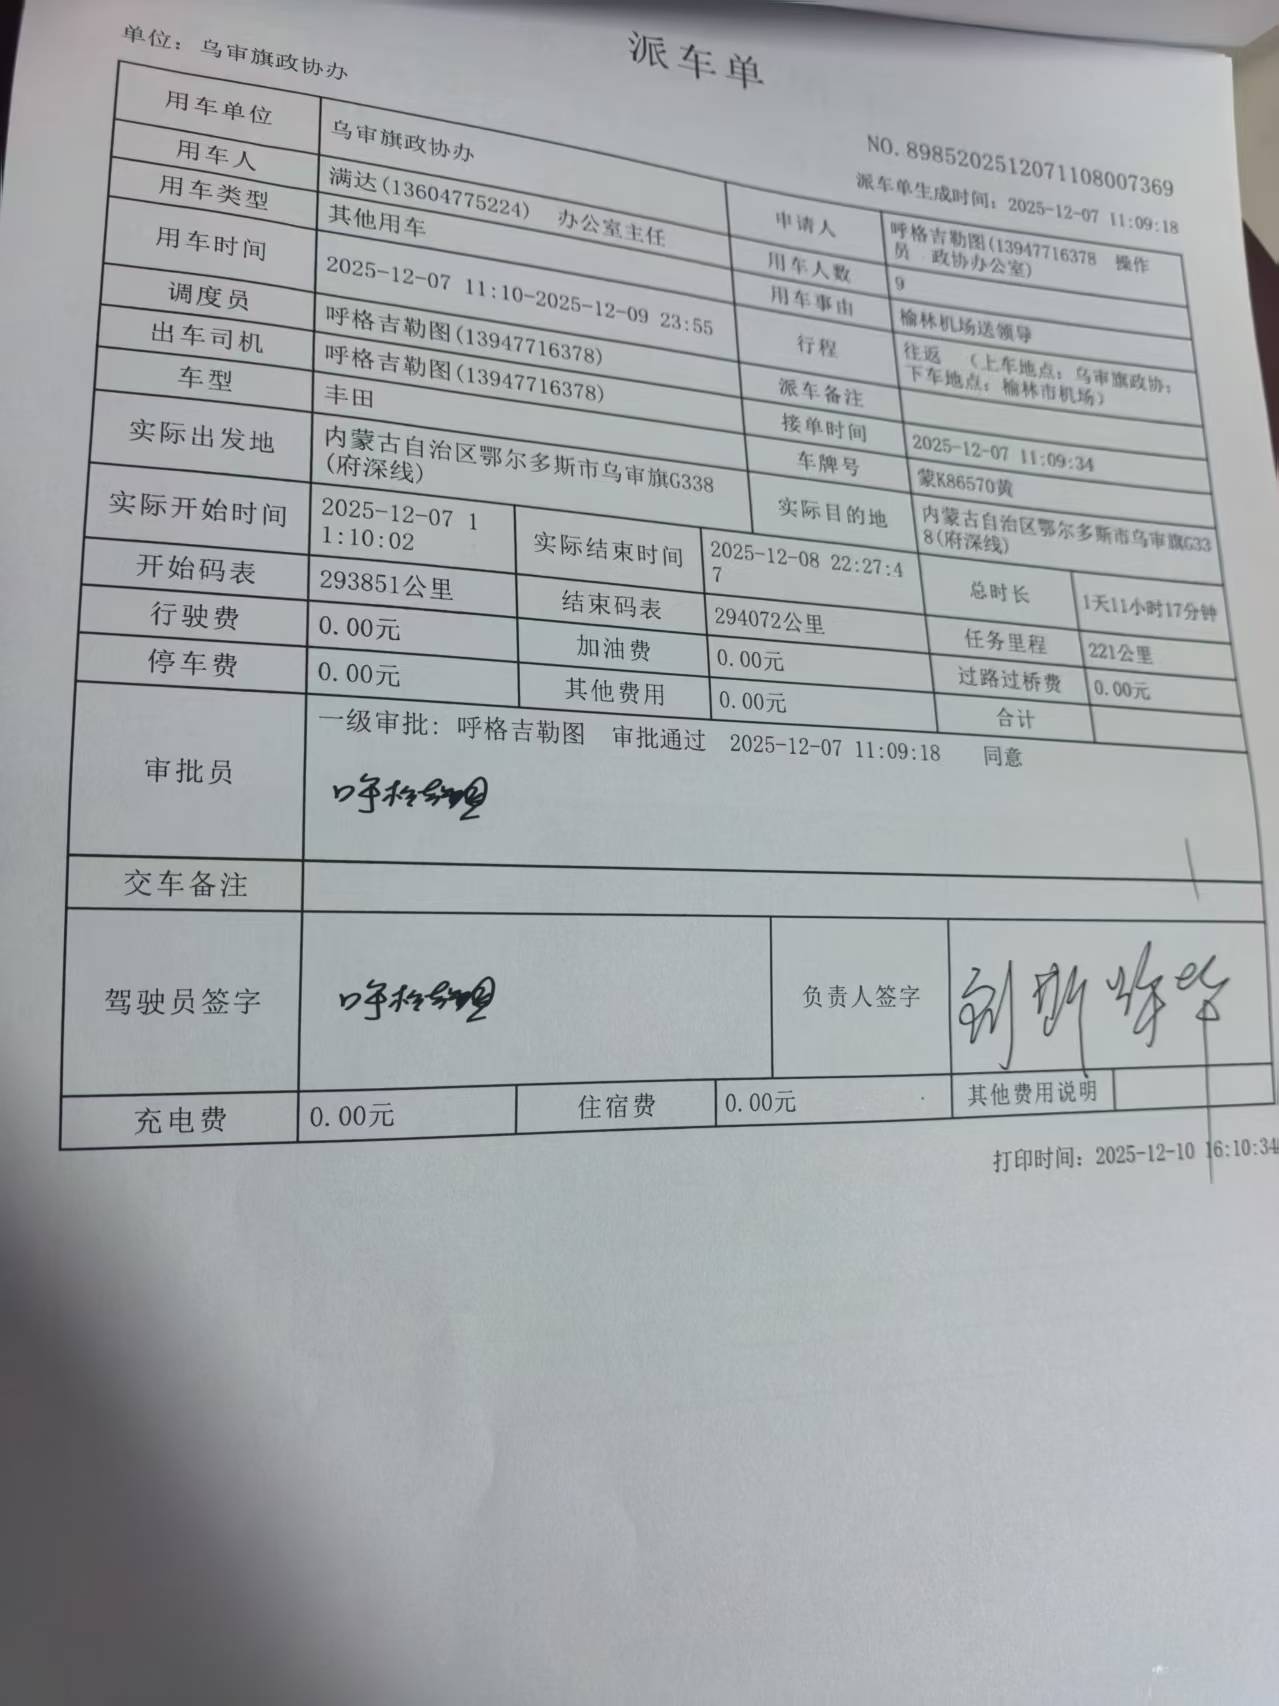 派车单
单位：乌审旗政协办
NO.8985202512071108007369
派车单生成时间：2025-12-07 11:09:18
用车单位 乌审旗政协办 申请人 呼格吉勒图(13947716378 操作
员 政协办公室)
用车人 满达(13604775224) 办公室主任 用车人数 9
用车类型 其他用车 用车事由 榆林机场送领导
用车时间 2025-12-07 11:10-2025-12-09 23:55 行程 往返 （上车地点：乌审旗政协；
下车地点：榆林市机场）
调度员 呼格吉勒图(13947716378) 派车备注
出车司机 呼格吉勒图(13947716378) 接单时间 2025-12-07 11:09:34
车型 丰田 车牌号 蒙K86570黄
实际出发地 内蒙古自治区鄂尔多斯市乌审旗G338
(府深线) 实际目的地 内蒙古自治区鄂尔多斯市乌审旗G33
8(府深线)
实际开始时间 2025-12-07 1
1:10:02 实际结束时间 2025-12-08 22:27:4
7 总时长 1天11小时17分钟
开始码表 293851公里 结束码表 294072公里 任务里程 221公里
行驶费 0.00元 加油费 0.00元 过路过桥费 0.00元
停车费 0.00元 其他费用 0.00元 合计
审批员 一级审批：呼格吉勒图 审批通过 2025-12-07 11:09:18 同意
呼格吉勒图
交车备注
驾驶员签字 呼格吉勒图 负责人签字
充电费 0.00元 住宿费 0.00元 其他费用说明
打印时间：2025-12-10 16:10:34